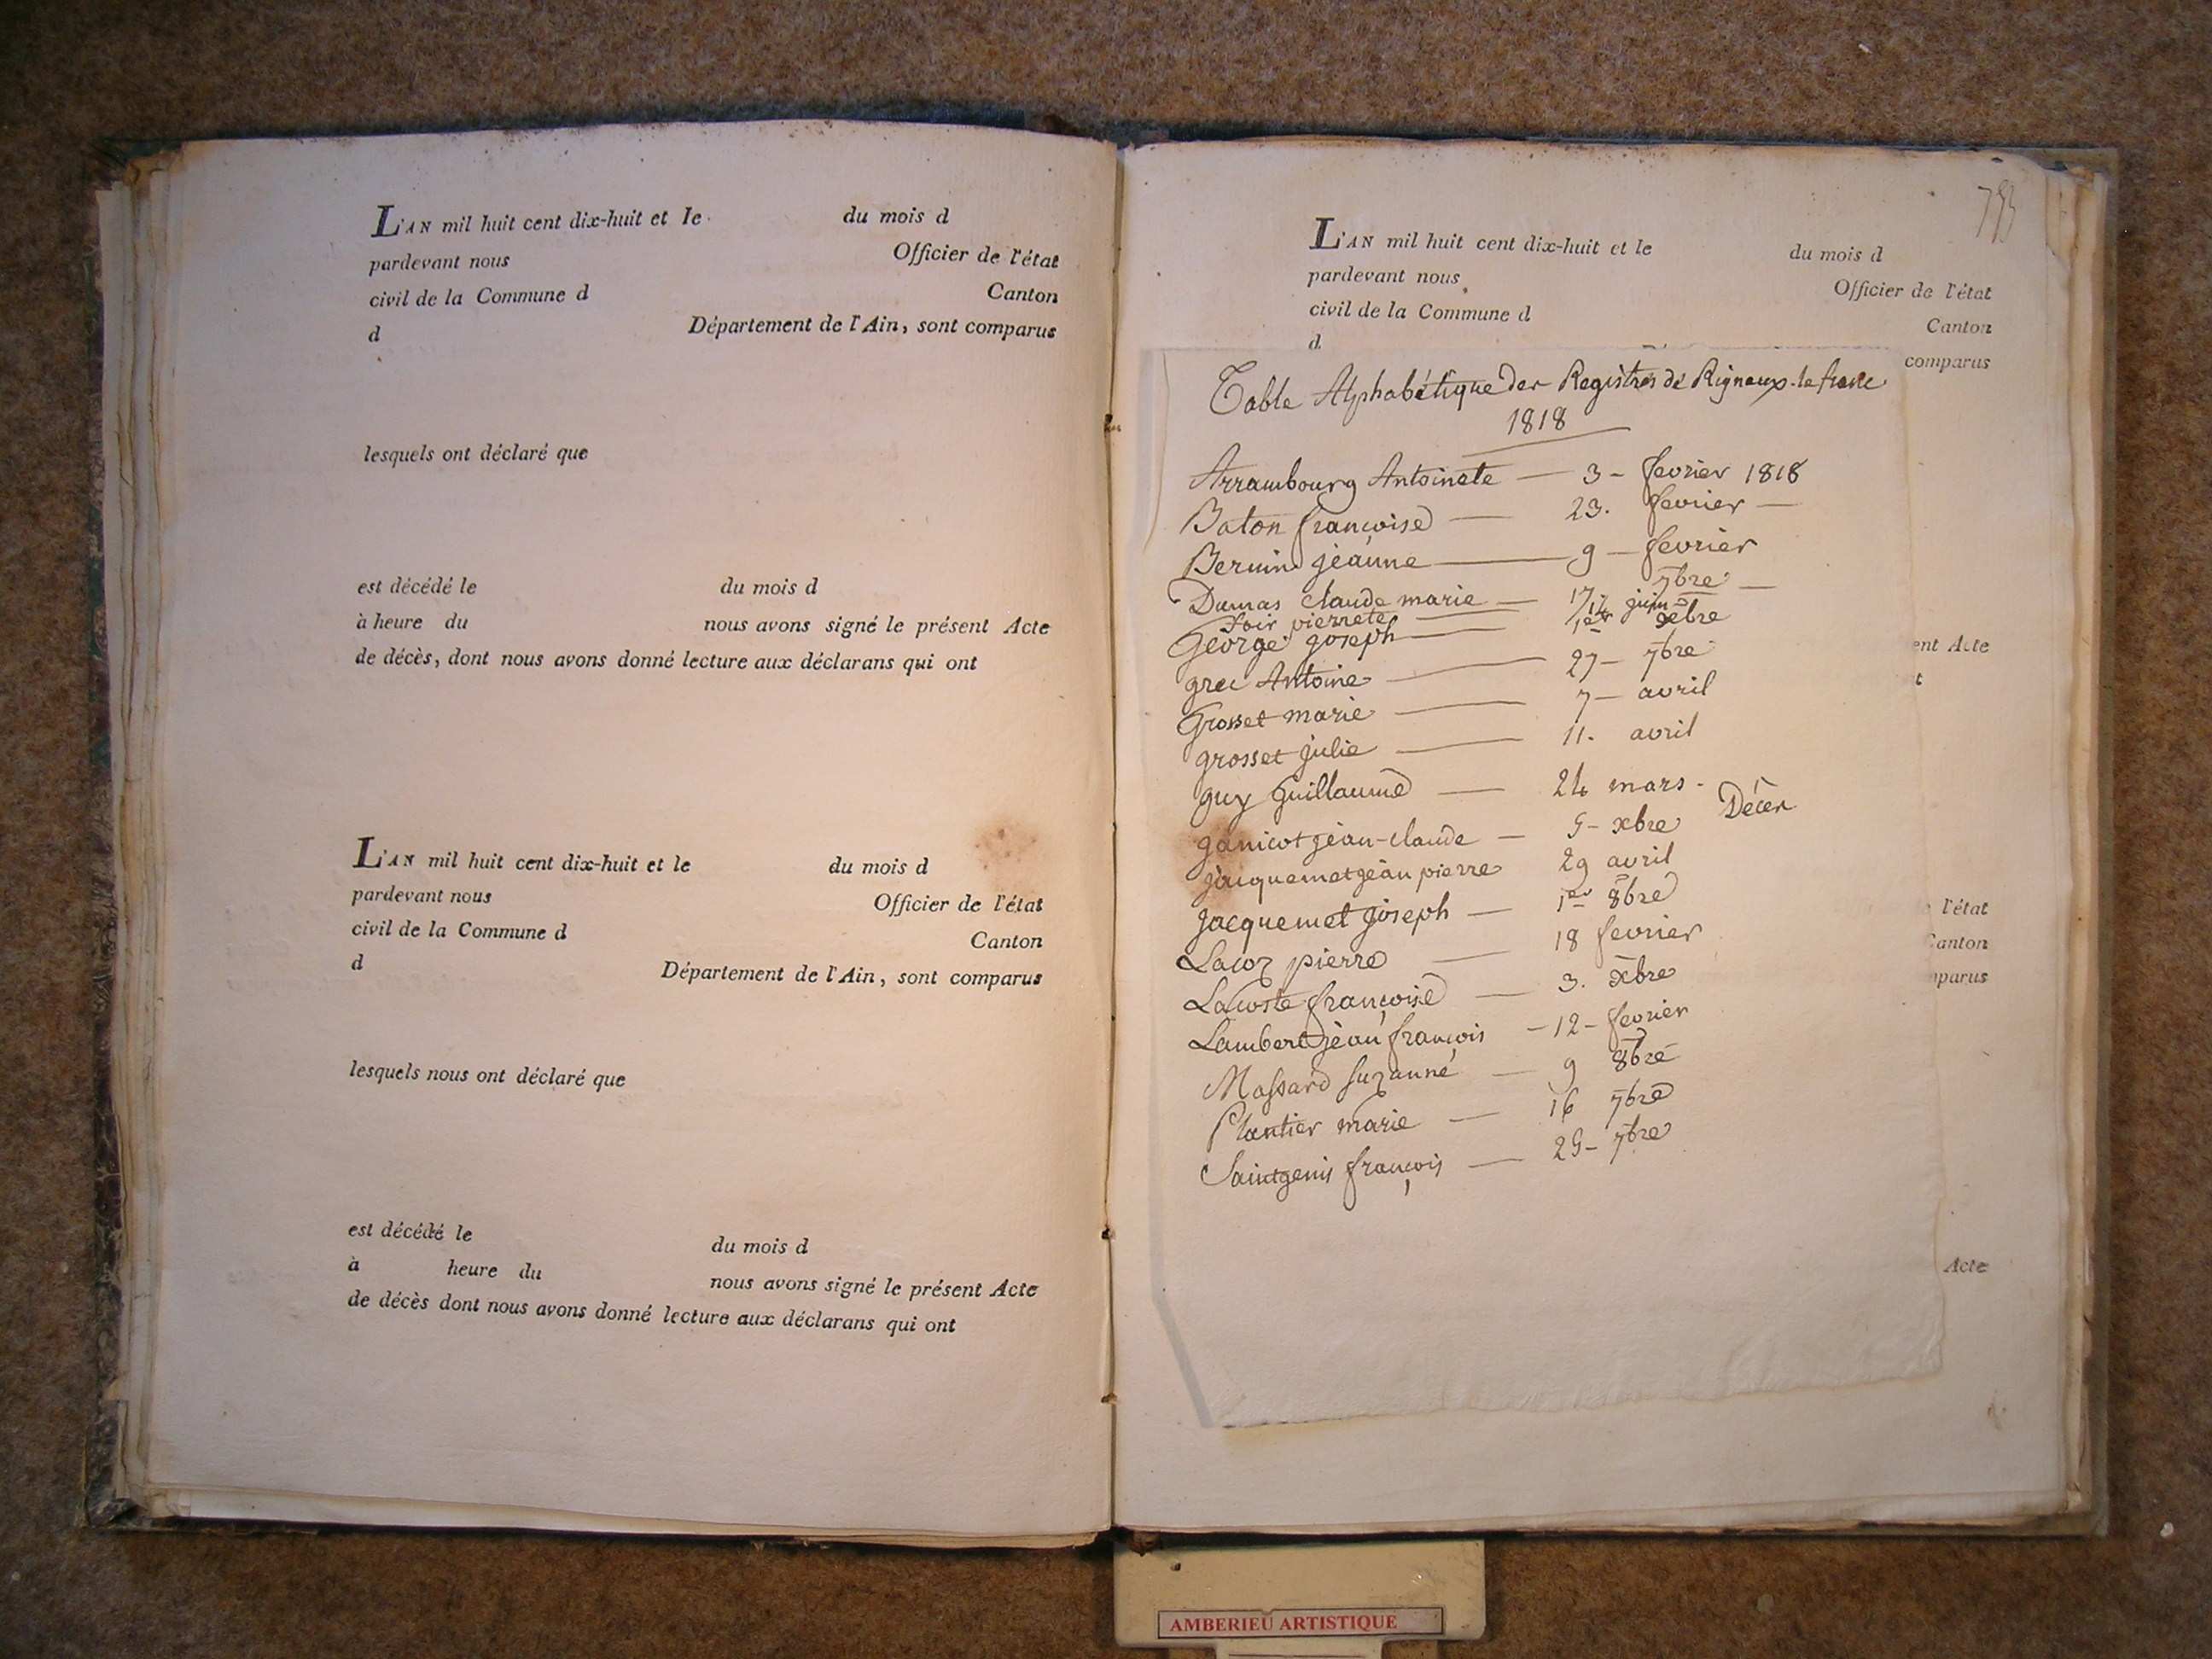 L'AN mil huit cent dix-huit et le du mois d
pardevant nous Officier de l'état
civil de la Commune d Canton
d Département de l'Ain, sont comparus
lesquels ont déclaré que
est décédé le du mois d
à heure du nous avons signé le présent Acte
de décès, dont nous avons donné lecture aux déclarans qui ont
L'AN mil huit cent dix-huit et le du mois d
pardevant nous Officier de l'état
civil de la Commune d Canton
d Département de l'Ain, sont comparus
lesquels nous ont déclaré que
est décédé le du mois d
à heure du nous avons signé le présent Acte
de décès dont nous avons donné lecture aux déclarans qui ont
L'AN mil huit cent dix-huit et le du mois d
pardevant nous Officier de l'état
civil de la Commune d Canton
d comparus
Table Alphabétique des Registres de Rigneux-le franc
1818
Arrambourg Antoinete — 3 - fevrier 1818
Baton françoise — 23. fevrier —
Bernin jeanne — 9 — fevrier
Dumas claude marie — 17 7bre —
foir pierrete — 14 juin
George joseph — 1er xbre
grec Antoine — 27 - 7bre
Grosset marie — 7 — avril
grosset julie — 11. avril
guy guillaume — 24 mars -
janicot jean-claude — 5 - xbre Décès
jacquemet jean pierre 29 avril
jacquemet joseph — 1er 8bre
Lacoz pierre — 18 fevrier
Lacoste françoise — 3. xbre
Lambert jean françois - 12 - fevrier
Massard suzanne — 9 8bre
Plantier marie — 16 7bre
Saintgenis françois — 25 - 7bre
ent Acte
t
l'état
Canton
mparus
Acte
AMBERIEU ARTISTIQUE